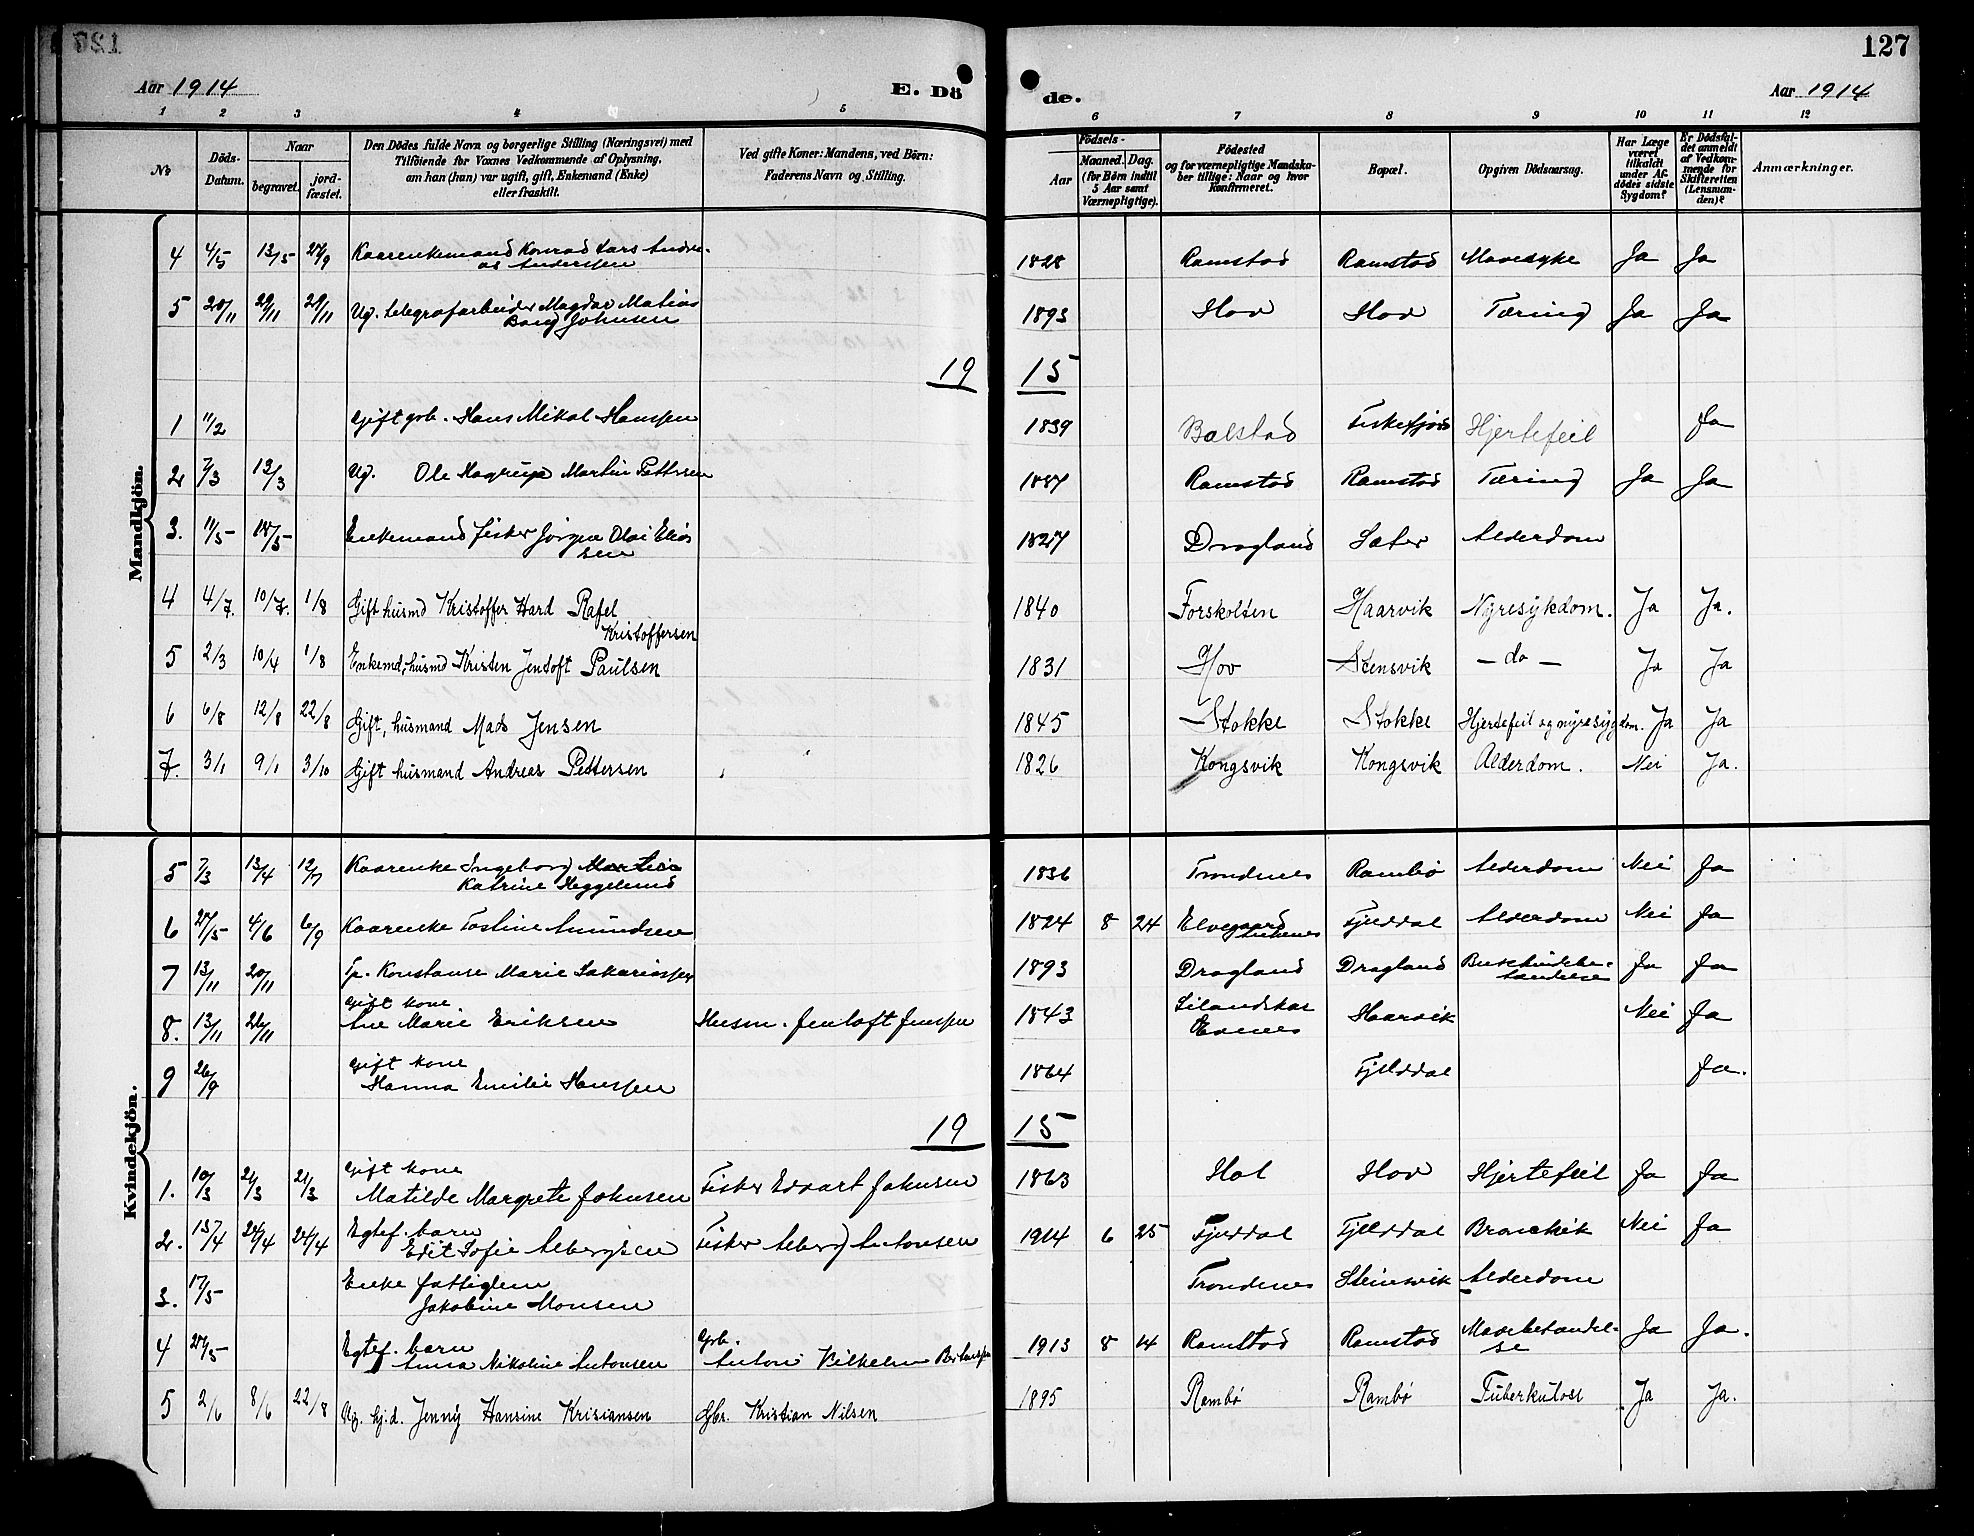 127
Aar 1914
E. Dö
de.
Aar 1914
1 2 3 4 5
6 7 8 9 10 11 12
№
Döds-
Datum.
Naar
begravet.
jord-
fæstet.
Den Dödes fulde Navn og borgerlige Stilling (Næringsvei) med
Tilföiende for Voxnes Vedkommende af Oplysning,
om han (hun) var ugift, gift, Enkemand (Enke)
eller fraskilt.
Ved gifte Koner: Mandens, ved Börn:
Faderens Navn og Stilling.
Födsels-
Aar
Maaned. Dag.
(for Börn indtil
5 Aar samt
Værnepligtige).
Födested
og for værnepligtige Mandska-
ber tillige: Naar og hvor
Konfirmeret.
Bopæl.
Opgiven Dödsaarsag.
Har Læge
været
tilkaldt
under Af-
dödes sidste
Sygdom?
Er Dödsfal-
det anmeldt
af Vedkom-
mende for
Skifteretten
(Lensman-
den)?
Anmærkninger.
Mandkjön.
4 4/5 13/5 27/9 Kaarenkemand Konrad Lars Andre-
as Anderssen 1828 Ramstad Ramstad Mavesyke Ja Ja
5 20/11 29/11 29/11 Ug. telegrafarbeider Magdar Matias
Bang Johnsen 1893 Hov Hov Tæring Ja Ja
19 15
1 11/2 Gift grb. Hans Mikal Hanssen 1839 Balstad Fiskefjord Hjertefeil Ja
2 7/3 13/3 Ug. Ole Hagrup Martin Pettersen 1887 Ramstad Ramstad Tæring Ja Ja
3. 11/5 18/5 Enkemand fisker Jörgen Olai Elias
sen 1827 Dragland Sæter Alderdom
4 4/7 10/7. 1/8 Gift husmd Kristoffer Hard Rafel
Kristoffersen 1840 Forskolten Haarvik Nyresykdom. Ja Ja.
5 2/3 10/4 1/8 Enkemd, husmd Kristen Jentoft Paulsen 1831 Hov Stensvik – do – Ja Ja
6 6/8 12/8 22/8 Gift, husmand Mads Jensen 1845 Stokke Stokke Hjertefeil og nyresygdom. Ja Ja
7. 3/1 9/1 3/10 Gift husmand Andreas Pettersen 1826 Kongsvik Kongsvik Alderdom. Nei Ja.
Kvindekjön.
5 7/3 13/4 12/7 Kaarenke Ingeborg Martine
Katrine Heggelund 1836 Trondenes Rambö Alderdom Nei Ja
6 27/5 4/6 6/9 Kaarenke Tostine Amundsen 1824 8 24 Elvegaard
Fjelddal Alderdom Nei Ja
7 13/11 20/11 Tp. Konstanse Marie Sakariassen 1893 Dragland Dragland Ja Ja
8. 13/11 26/11 Gift kone
Ane Marie Eriksen Husm. Jentoft Jenssen 1843 Lilandskar
Evenes Haarvik Nei Ja
9 26/9 Gift kone
Hanna Emilie Hanssen 1864 Fjelddal Ja.
19 15
1. 10/3 21/3 21/3 Gift kone
Matilde Margrete Johnsen Fisker Edvart Johnsen 1863 Hol Hov Hjertefeil Ja Ja
2. 15/4 24/4 24/4 Egtef. barn
Edit Sofie Albergsen Fisker Alberg Antonsen 1914 6 25 Fjelddal Fjelddal Bronchit Nei Ja
3. 17/5 Enke fattiglem
Jakobine Monsen Trondenes Steinsvik Alderdom
4 27/5 Egtef. barn
Anna Nikoline Antonsen Grb.
Anton Vilhelm Berthinssen 1913 8 14 Ramstad Ramstad Mavebetændel-
se Ja Ja.
5 2/6 8/6 22/8 Ug. hj.d. Jenny Hansine Krisiansen Gbr. Kristian Nilsen 1895 Rambö Rambö Tuberkulose Ja Ja.